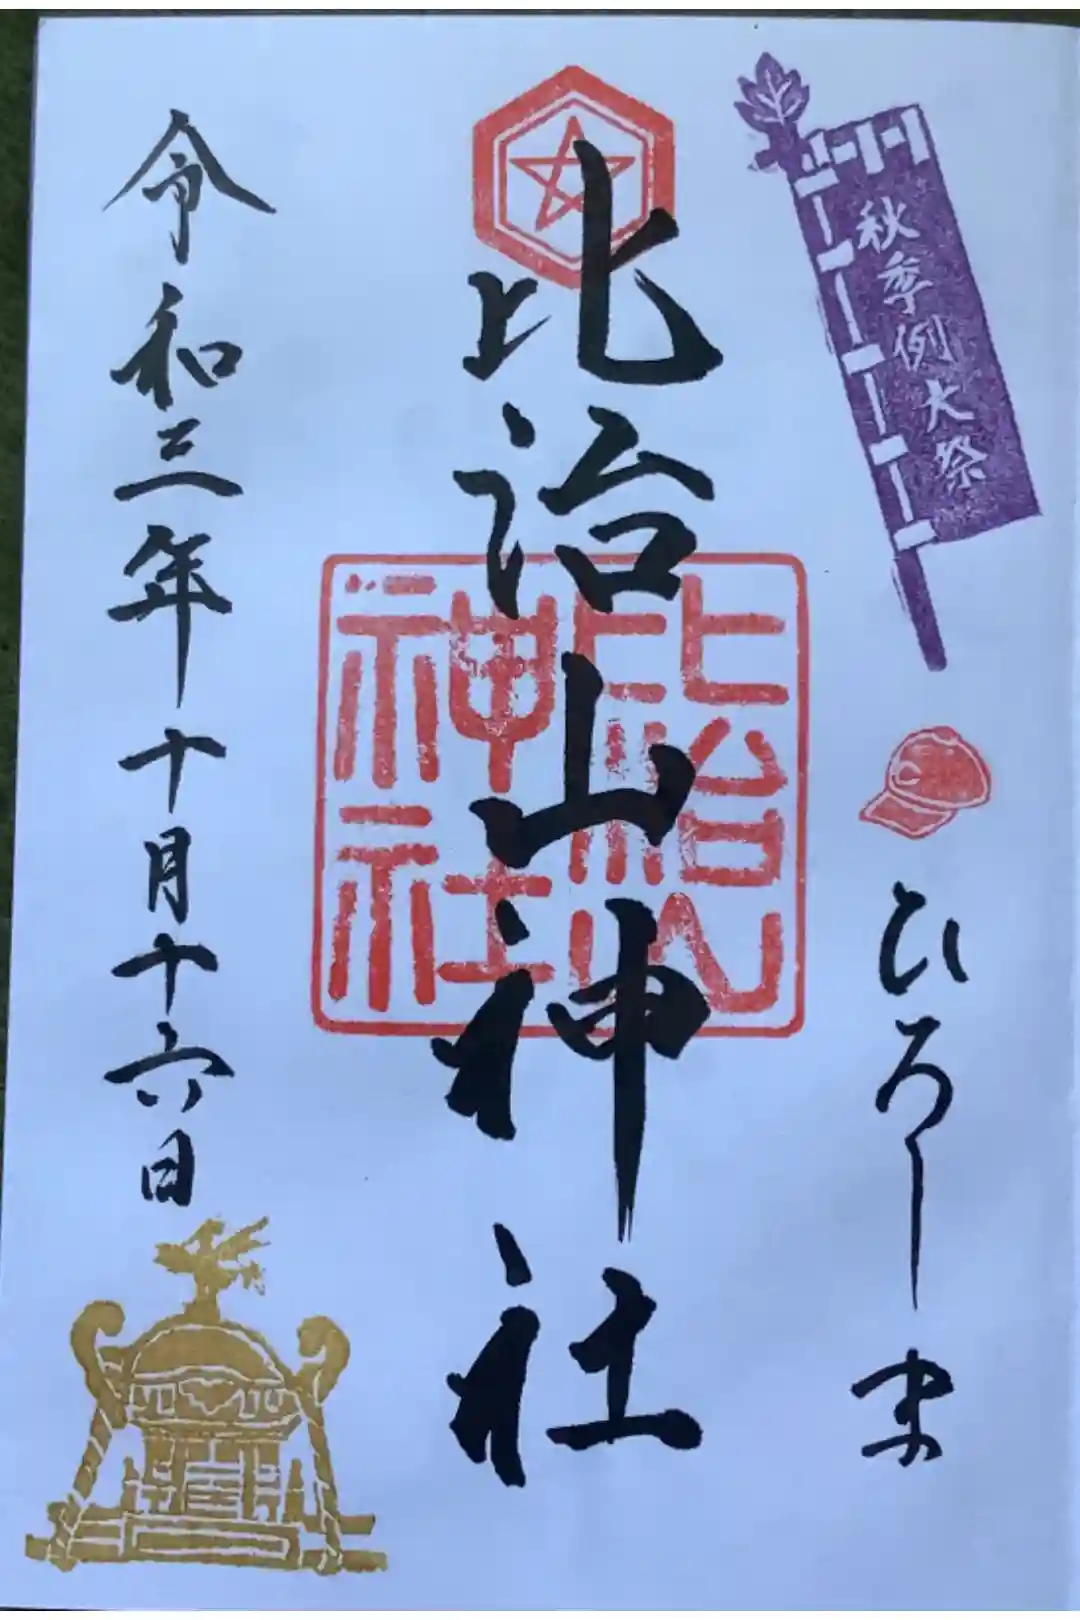 秋季例大祭
ひろしま
比治山神社
比治山
神社
令和三年十月十六日